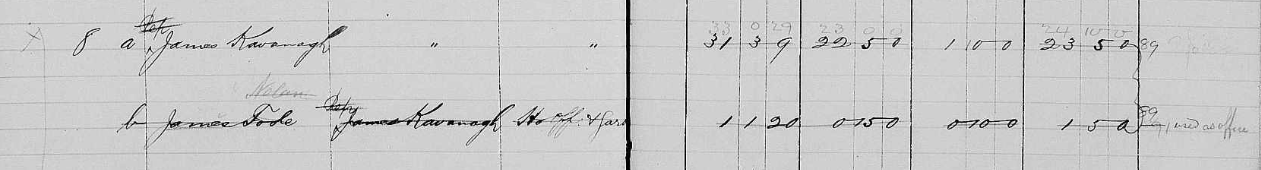 33 0 29 23 24 10 0
8 a James Kavanagh " " 31 3 9 22 5 0 1 10 0 23 5 0 89
Nolan
b James Toole James Kavanagh Ho. off. & Gard 1 1 20 0 15 0 0 10 0 1 5 0 89 used as office